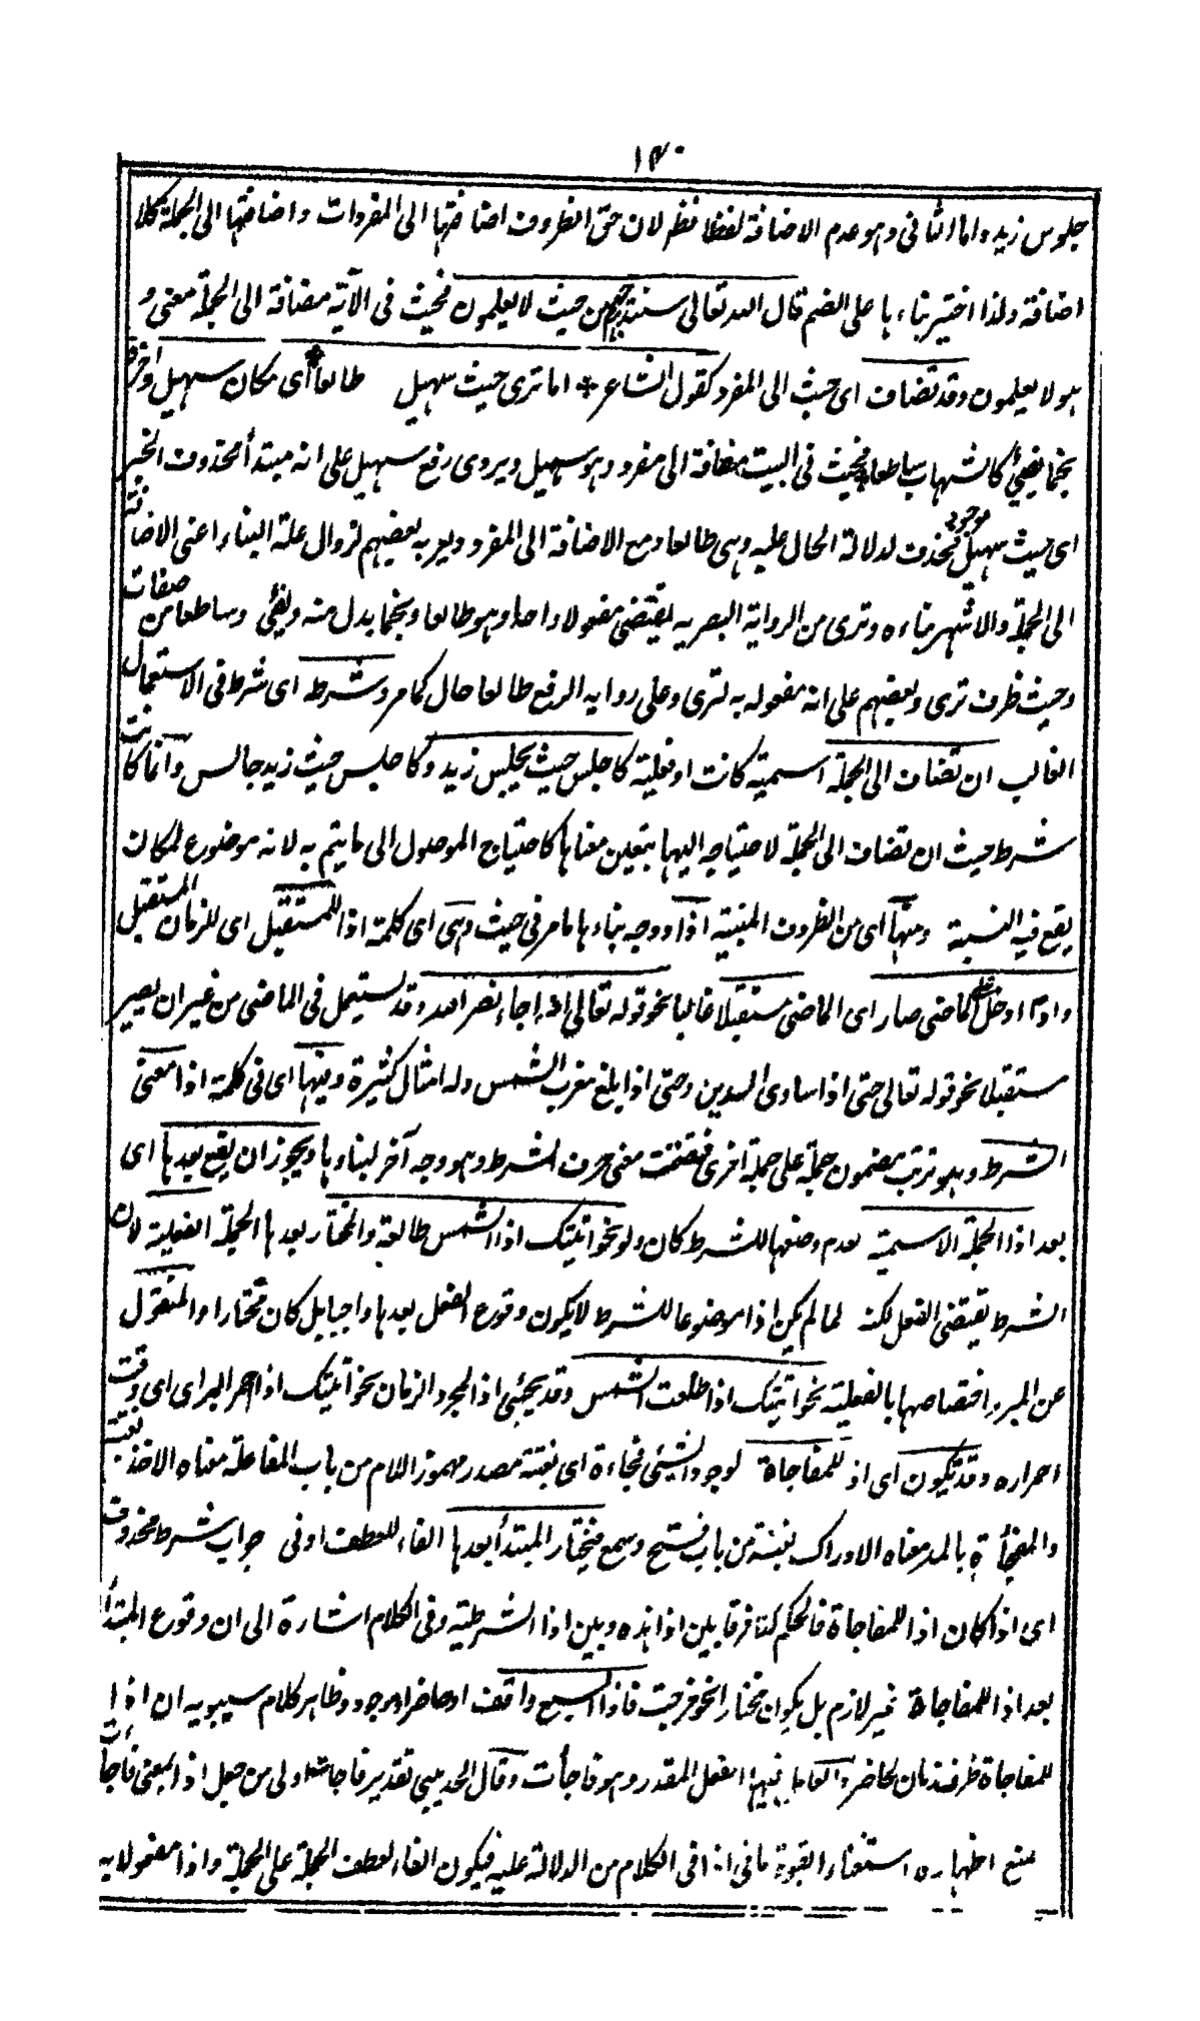 ١٤٠
جلوس زيد واما الثانى وهو عدم الاضافة لفظا فنظر لان حق الظروف اضافتها الى المفردات واضافتها الى الجملة كلا
اضافة ولذا اختير بناءها على الضم قال الله تعالى سنستدرجهم من حيث لا يعلمون فحيث فى الآية مضافة الى الجملة معنى و
هو لا يعلمون وقد تضاف اى حيث الى المفرد كقول الشاعر * اما ترى حيث سهيل طالعا * اى مكان سهيل واخره
نجما يضئ كالشهاب ساطعا فحيث فى البيت مضافة الى مفرد وهو سهيل ويروى رفع سهيل على انه مبتدأ محذوف الخبر
اى حيث سهيل موجود فحذف لدلالة الحال عليه وهى طالعا ومع الاضافة الى المفرد ويعربه بعضهم لزوال علة البناء اعنى الاضافة
الى الجملة والاشهر بناءه وترى من الرواية البصرية يقتضى مفعولا واحدا وهو طالعا ونجما بدل منه ويضئ وساطعا من صفات
وحيث ظرف ترى وبعضهم على انه مفعول به لترى وعلى رواية الرفع طالعا حال كما مر وشرطه اى شرط فى الاستعمال
الغالب ان تضاف الى الجملة اسمية كانت او فعلية كاجلس حيث يجلس زيد وكاجلس حيث زيد جالس وانما كانت
شرط حيث ان تضاف الى الجملة لاحتياجه اليها بتعين معناها كاحتياج الموصول الى ما يتم به لانه موضوع لمكان
يقع فيه النسبة ومنها اى من الظروف المبنية اذا ووجه بناءها ما مر فى حيث وهى اى كلمة اذا للمستقبل اى للزمان المستقبل
واذا ادخل على الماضى صار اى الماضى مستقبلا غالبا نحو قوله تعالى اذا جاء نصر الله وقد يستعمل فى الماضى من غير ان يصير
مستقبلا نحو قوله تعالى حتى اذا ساوى السدين وحتى اذا بلغ مغرب الشمس وله امثال كثيرة وفيها اى فى كلمة اذا معنى
الشرط وهو ترتب مضمون جملة على جملة اخرى فتضمنت معنى حرف الشرط وهو وجه آخر لبناءها ويجوز ان يقع بعدها اى
بعد اذا الجملة الاسمية لعدم وضعها للشرط كان ولو نحو اتيتك اذا الشمس طالعة والمختار بعدها الجملة الفعلية لان
الشرط يقتضى الفعل لكنه لما لم يكن اذا موضوعا للشرط لا يكون وقوع الفعل بعدها واجبا بل كان مختارا والمنقول
عن المبرد اختصاصها بالفعلية نحو اتيتك اذا طلعت الشمس وقد يجئ اذا لمجرد الزمان نحو اتيتك اذا احمر البسر اى وقت
احمراره وقد تكون اى اذا للمفاجاة لوجود الشئ فجاءة اى بغتة مصدر مهموز اللام من باب المفاعلة معناه الاخذ بغتة
والمفجأة بالمد معناه الادراك بغتة من باب فتح وسمع فيختار المبتدأ بعدها الفاء للعطف او فى جواب شرط محذوف
اى اذا كان اذا للمفاجاة فالحكم كذا فرقا بين اذا هذه وبين اذا الشرطية وفى الكلام اشارة الى ان وقوع المبتدأ
بعد اذا للمفاجاة غير لازم بل يكون مختارا نحو خرجت فاذا السبع واقف او حاضر او موجود وظاهر كلام سيبويه ان اذا
للمفاجاة ظرف زمان لحاضر والعامل فيها الفعل المقدر وهو فاجأت وقال الحديثى تقدير فاجأت اولى من جعل اذا بمعنى فاجأت
منع اظهاره استغناء لقوة ما فى اذا فى الكلام من الدلالة عليه فيكون الفاء لعطف الجملة على الجملة واذا مفعولا به